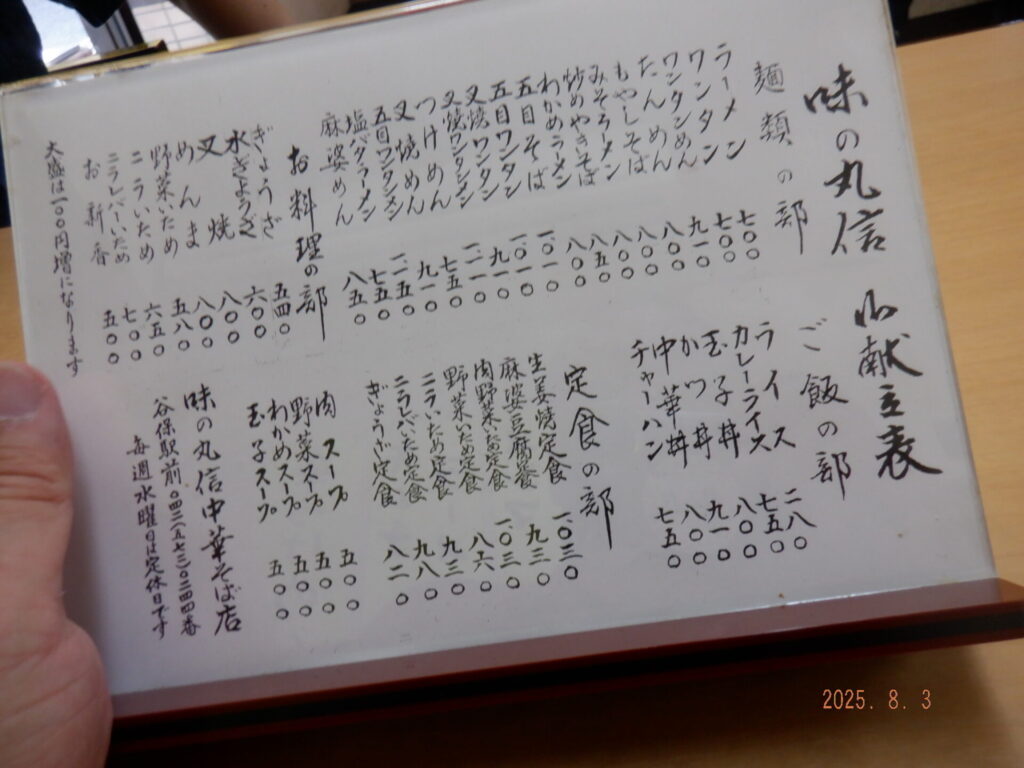 味の丸信 御献立表
麺類の部
ラーメン 七〇〇
ワンタン 七〇〇
ワンタンめん 九一〇
たんめん 八〇〇
もやしそば 八〇〇
みそラーメン 八〇〇
炒めやきそば 八五〇
わかめラーメン 八〇〇
五目そば 一、〇一〇
五目ワンタン 一、〇一〇
叉焼ワンタン 九一〇
叉焼ワンタンメン 一、一一〇
つけめん 七五〇
叉焼めん 九一〇
五目ワンタンメン 一、一五〇
塩バタラーメン 七五〇
麻婆めん 八五〇
お料理の部
ぎょうざ 五四〇
水ぎょうざ 六〇〇
叉焼 八〇〇
めんま 八〇〇
野菜いため 五八〇
ニラいため 六五〇
ニラレバーいため 七〇〇
お新香 五〇〇
大盛は一〇〇円増になります
ご飯の部
ライス 二八〇
カレーライス 七五〇
玉子丼 八〇〇
かつ丼 九一〇
中華丼 八〇〇
チャーハン 七五〇
定食の部
生姜焼定食 一、〇三〇
麻婆豆腐定食 九三〇
肉野菜いため定食 一、〇三〇
野菜いため定食 八六〇
ニラいため定食 九三〇
ニラレバいため定食 九八〇
ぎょうざ定食 八二〇
肉スープ 五〇〇
野菜スープ 五〇〇
わかめスープ 五〇〇
玉子スープ 五〇〇
味の丸信中華そば店
谷保駅前 〇四二(五七三)〇二四四番
毎週水曜日は定休日です
2025. 8. 3